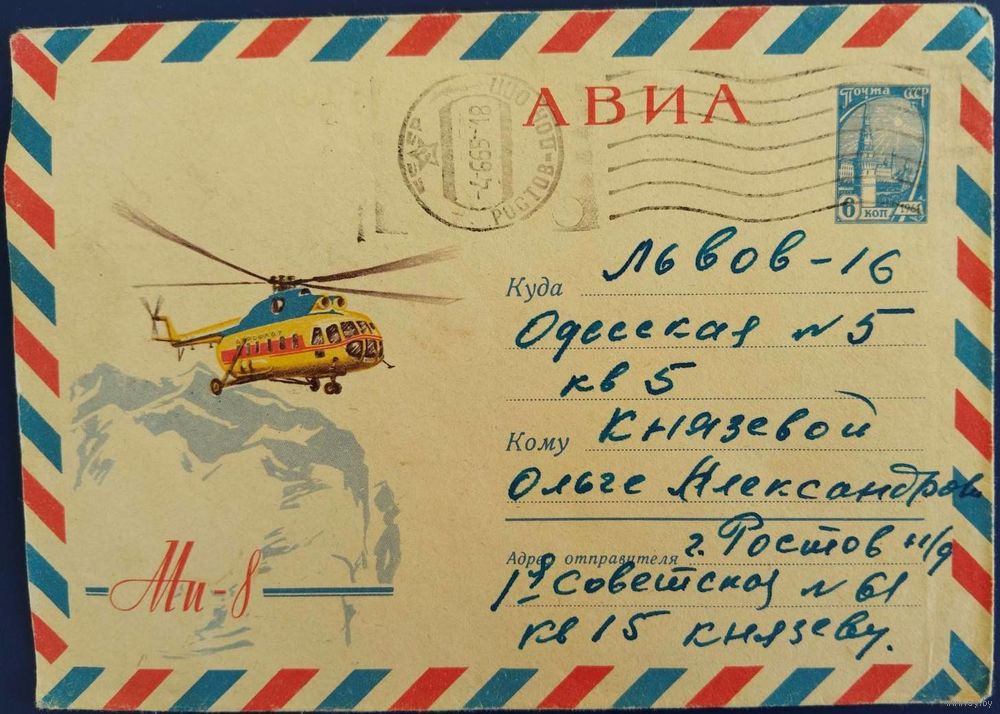 АВИА
Почта СССР
6 коп 1961
-4.665-18
РОСТОВ-ДОН
Куда Львов-16
Одесская № 5
кв 5
Кому Князевой
Ольге Александров
Адрес отправителя г. Ростов н/д
1я Советская № 61
кв 15 Князеву.
АЭРОФЛОТ
Ми-8